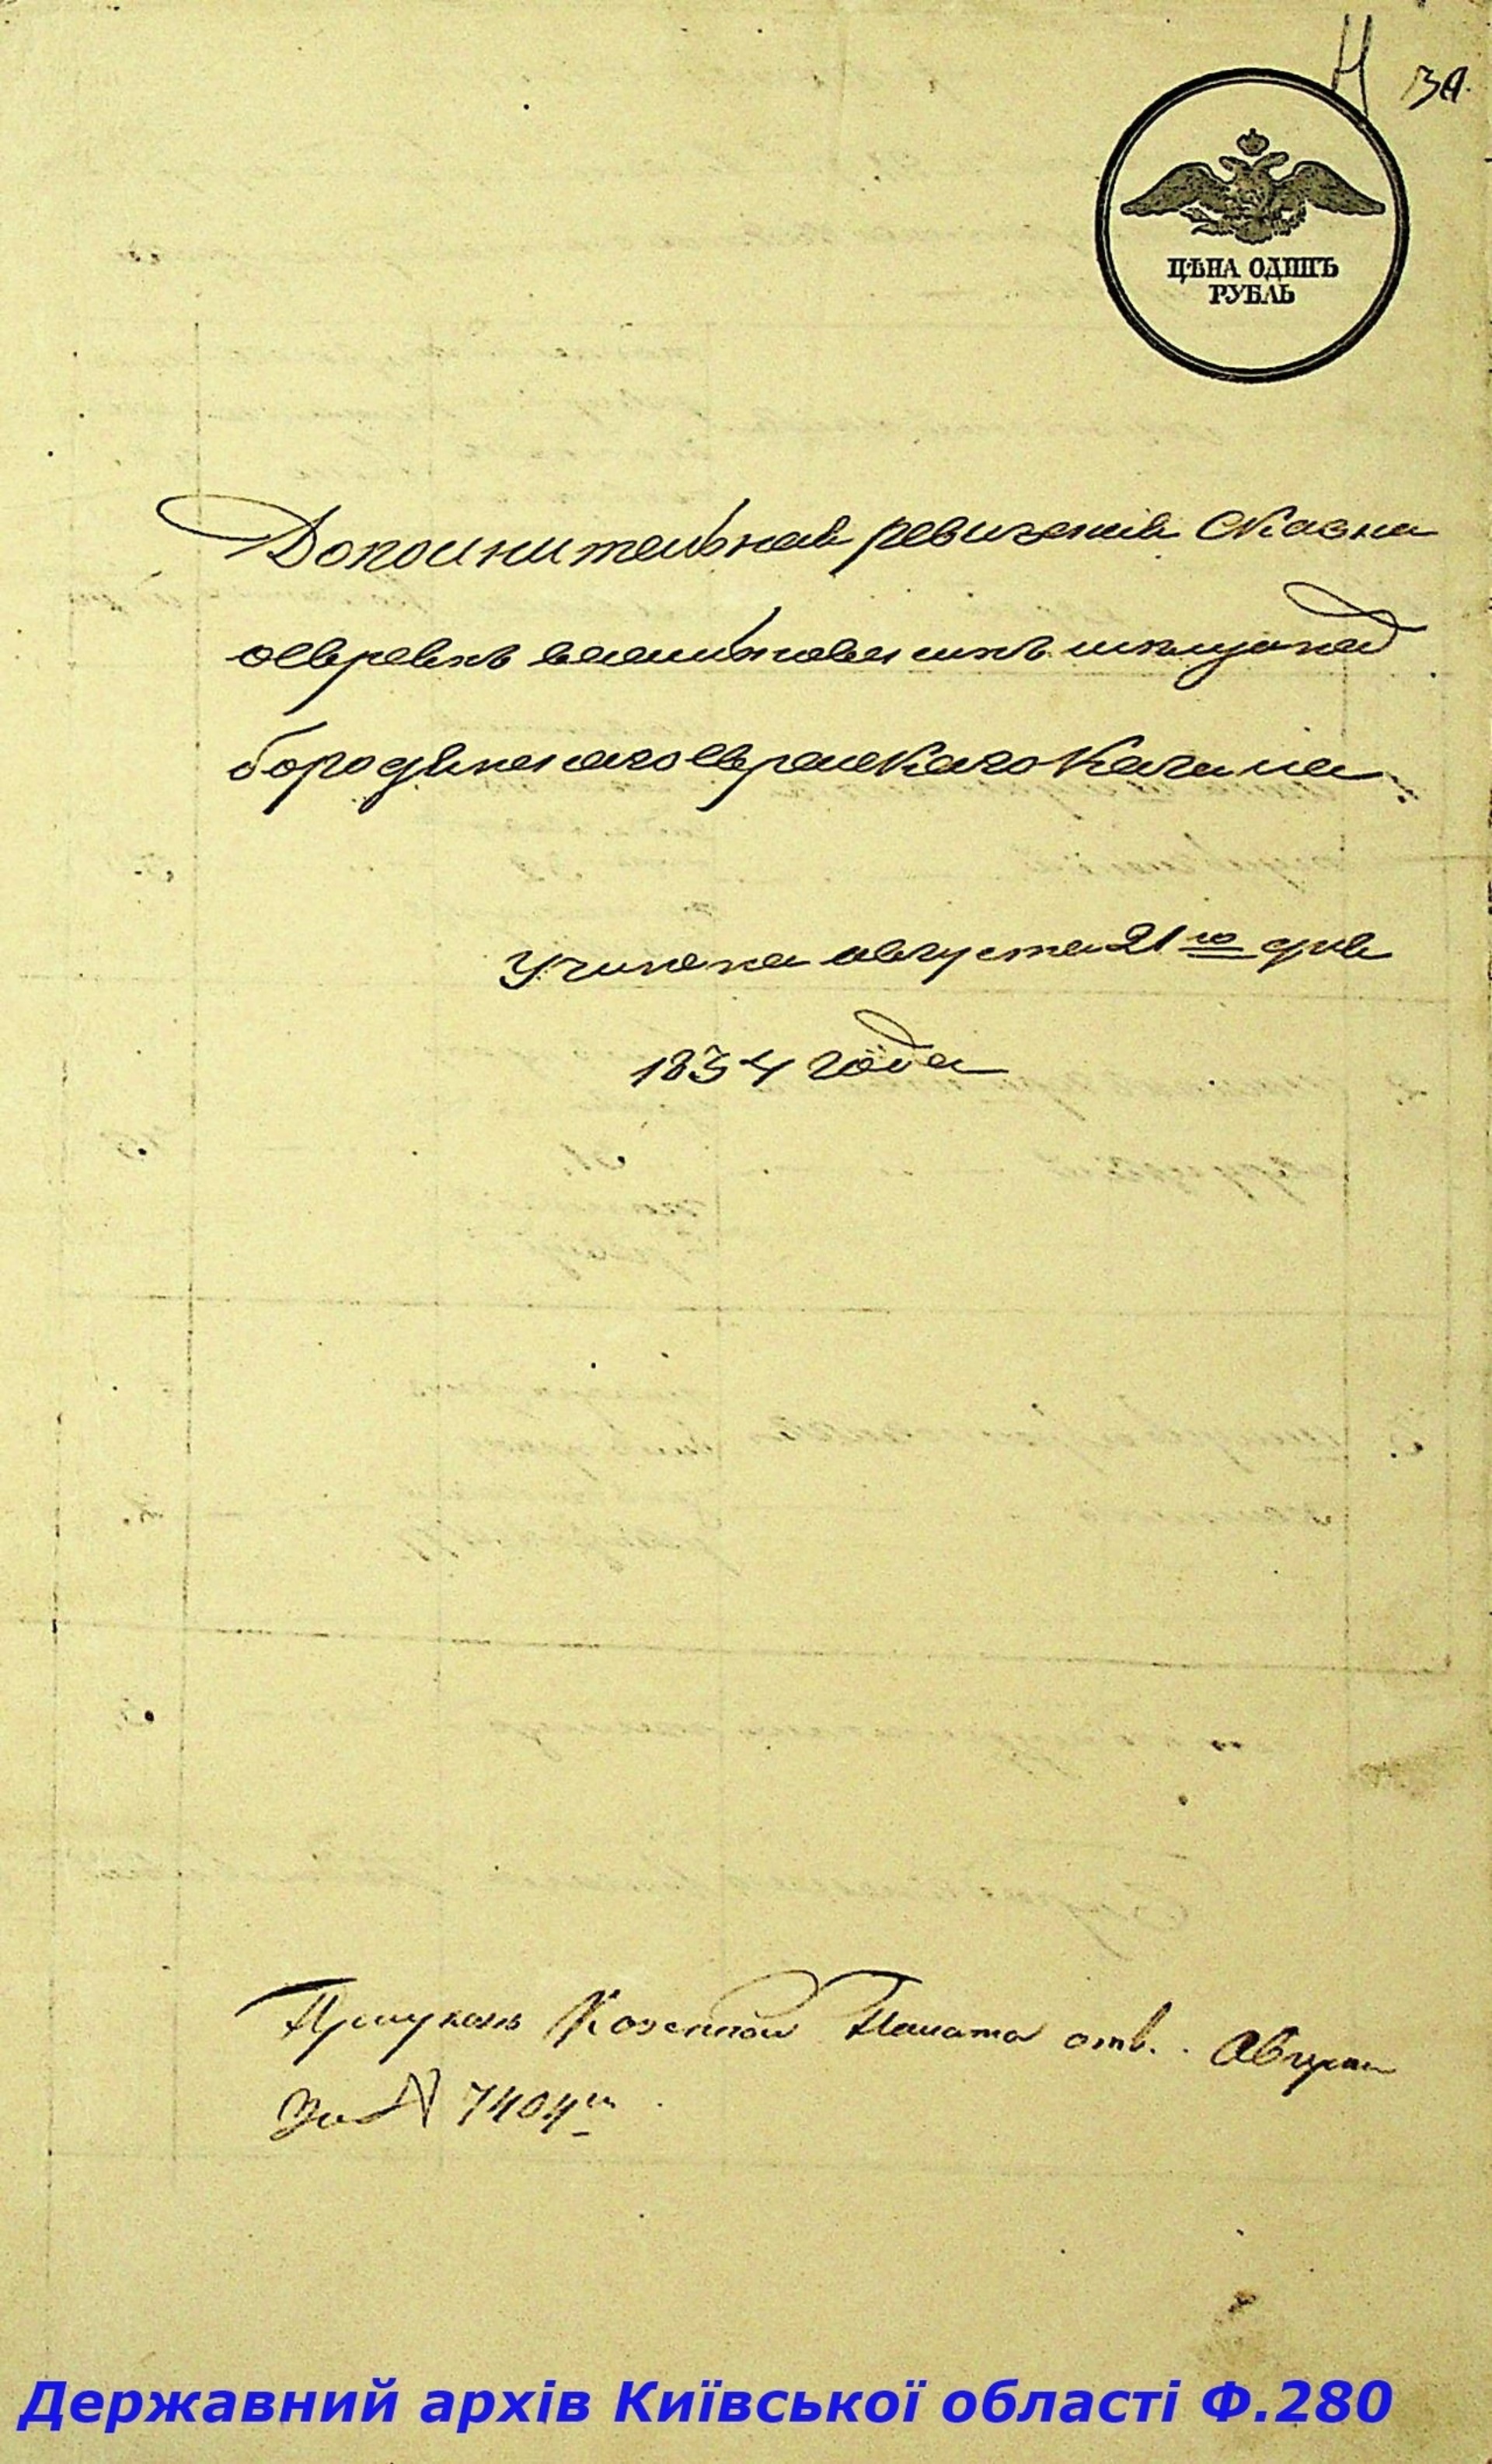 30.
ЦѢНА ОДИНЪ
РУБЛЬ
Дополнительная ревизская сказка
о евреяхъ
бородянскаго еврейскаго Кагала
Учинена августа 21го дня
1834 года
Казенной Палата отв. Август
За N 7404м
Державний архів Київської області Ф.280